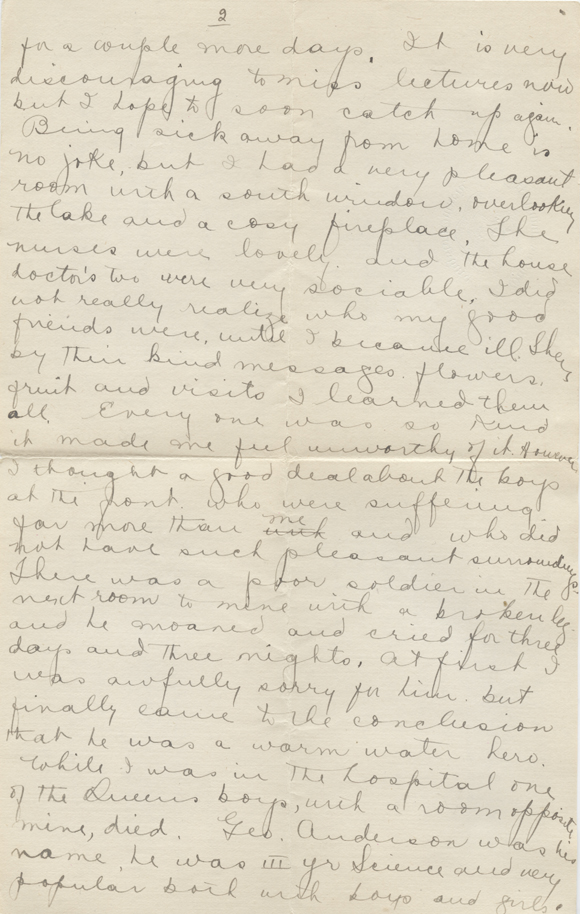 2
for a couple more days. It is very
discouraging to miss lectures now
but I hope to soon catch up again.
Being sick away from home is
no joke, but I had a very pleasant
room with a south window, overlooking
the lake and a cosy fireplace. The
nurses were lovely. and the house
doctor's two were very sociable. I did
not really realize who my good
friends were, until I became ill. Then
by their kind messages. flowers.
fruit and visits I learned them
all. Every one was so kind
it made me feel unworthy of it. However
I thought a good deal about the boys
at the front. who were suffering
far more than me and who did
not have such pleasant surroundings.
There was a poor soldier in the
next room to mine with a broken leg.
and he moaned and cried for three
days and three nights. At first I
was awfully sorry for him. but
finally came to the conclusion
that he was a warm water hero.
While I was in the hospital one
of the Queens boys, with a room opposite
mine, died. Geo. Anderson was his
name, he was III yr Science and very
popular both with boys and girls.